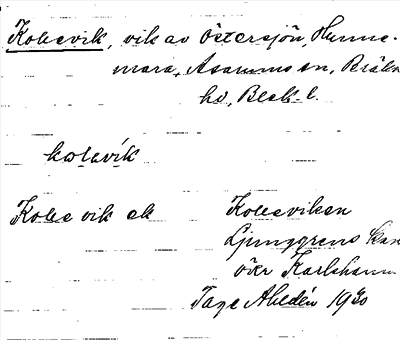 Kolesvik, vik av Östersjön, Hunne-
mara, Asarums sn, Bräkne
hd, Blek. l.
kọləvík
Kolesvik ek Kolesviken
Ljunggrens kart
över Karlshamn
Tage Ahldén 1930